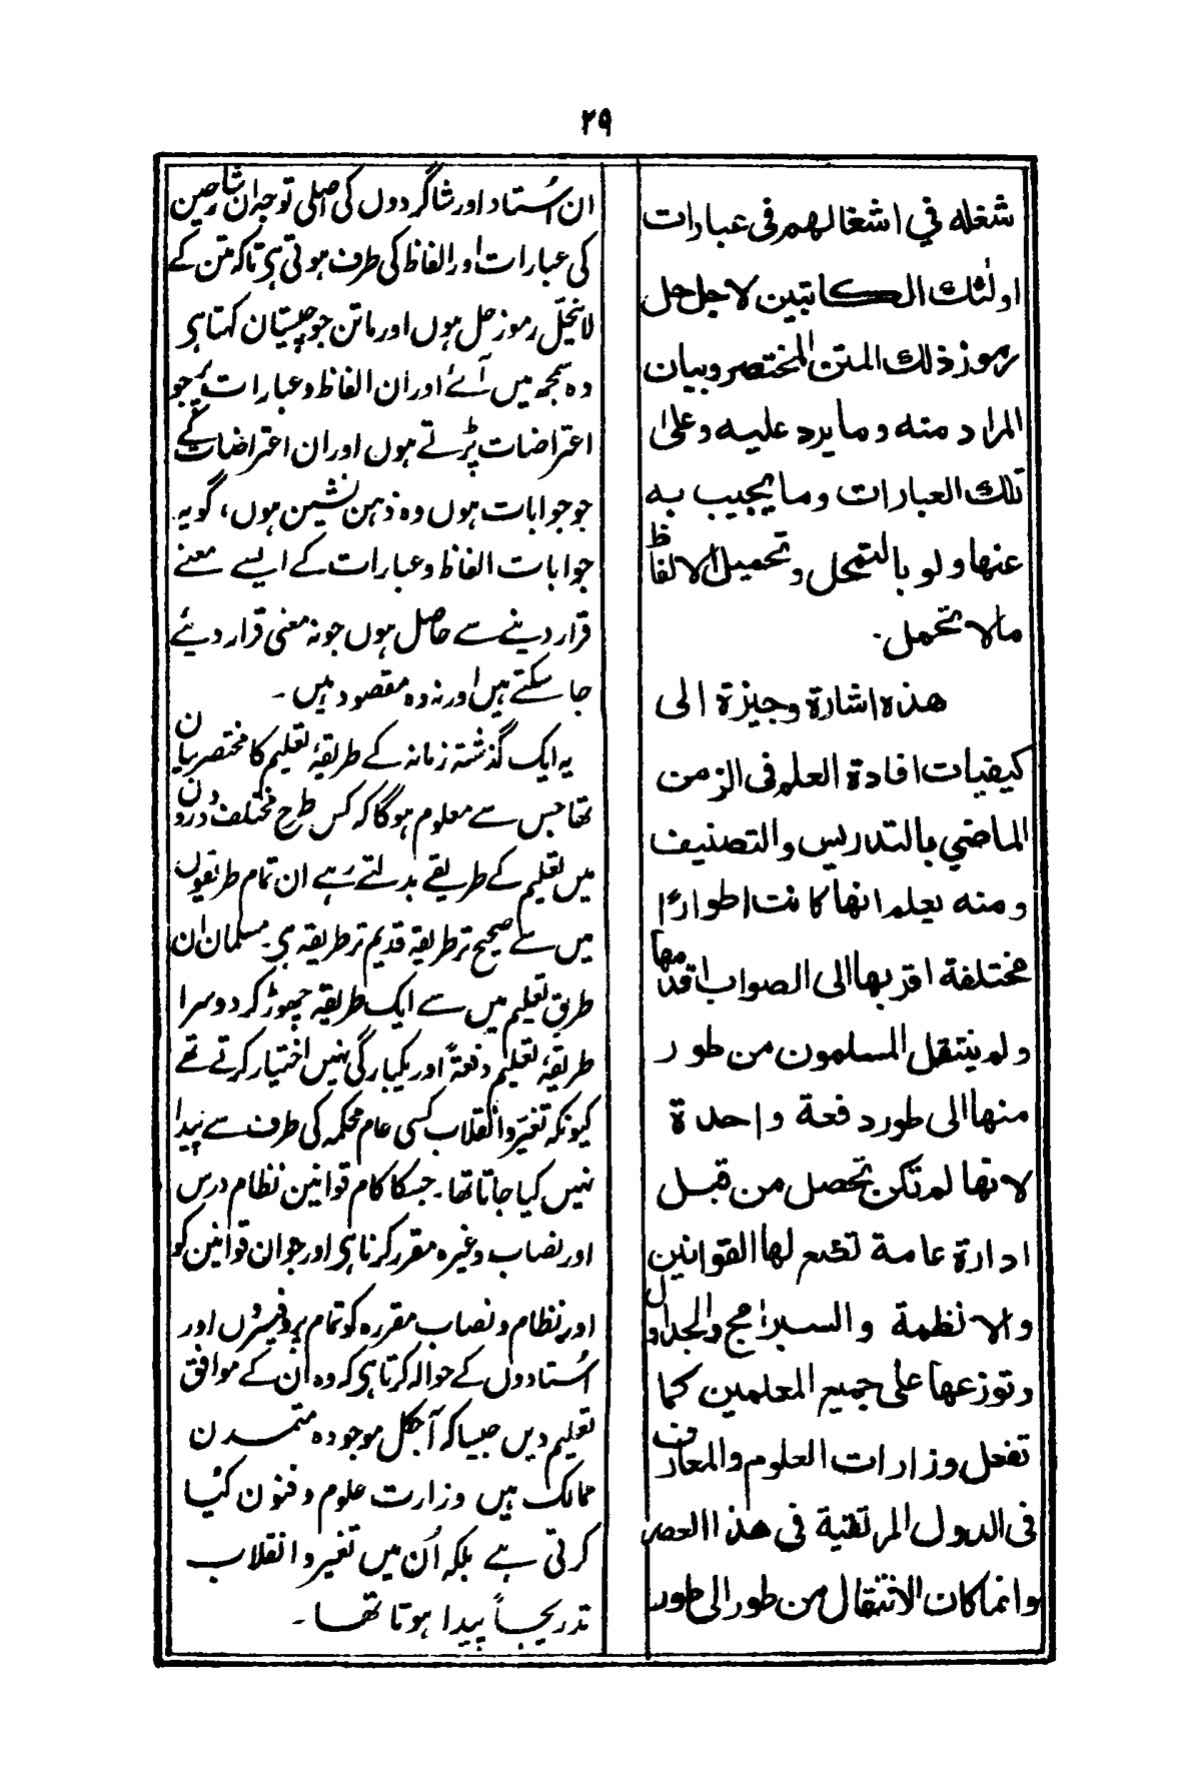 ۲۹
شغله في اشغالهم فى عبارات
اولئك الكاتبين لاجل حل
رموز ذلك المتن المختصر وبيان
المراد منه وما يرد عليه وعلى
تلك العبارات وما يجيب به
عنها ولو بالتمحل وتحميل الالفاظ
مالا تحمل.
هذه اشارة وجيزة الى
كيفيات افادة العلم فى الزمن
الماضي بالتدريس والتصنيف
ومنه يعلم انها كانت اطوارًا
مختلفة اقربها الى الصواب اقدمها
ولم ينتقل المسلمون من طور
منها الى طور دفعة واحدة
لانها لم تكن تحصل من قبل
ادارة عامة تضع لها القوانين
والانظمة والبرامج والجداول
وتوزعها على جميع المعلمين كما
تفعل وزارات العلوم والمعارف
فى الدول المرتقية فى هذا العصر
وانما كان الانتقال من طور الى طور
ان اُستاد اور شاگردوں کی اصلی توجہ ان شارحین
کی عبارات اور الفاظ کی طرف ہوتی ہی تاکہ متن کے
لاینحل رموز حل ہوں اور ماتن جو چیستان کہتا ہی
وہ سمجھ میں آئے اور ان الفاظ و عبارات پر جو
اعتراضات پڑتے ہوں اور ان اعتراضات کے
جو جوابات ہوں وہ ذہن نشین ہوں، گو یہ
جوابات الفاظ و عبارات کے ایسے معنے
قرار دینے سے حاصل ہوں جو نہ معنی قرار دیئے
جا سکتے ہیں اور نہ وہ مقصود ہیں۔
یہ ایک گذشتہ زمانہ کے طریقۂ تعلیم کا مختصر بیان
تھا جس سے معلوم ہوگا کہ کس طرح مختلف دوروں
میں تعلیم کے طریقے بدلتے رہے ان تمام طریقوں
میں سے صحیح تر طریقہ قدیم تر طریقہ ہی۔ مسلمان ان
طرق تعلیم میں سے ایک طریقہ چھوڑ کر دوسرا
طریقۂ تعلیم دفعۃً اور یکبارگی نہیں اختیار کرتے تھے
کیونکہ تغیر و انقلاب کسی عام محکمہ کی طرف سے پیدا
نہیں کیا جاتا تھا۔ جسکا کام قوانین نظام درس
اور نصاب وغیرہ مقرر کرنا ہی اور جو ان قوانین کو
اور نظام و نصاب مقررہ کو تمام پروفیسروں اور
اُستادوں کے حوالہ کرتا ہی کہ وہ ان کے موافق
تعلیم دیں جیسا کہ آجکل موجودہ متمدن
ممالک میں وزارت علوم و فنون کیا
کرتی ہے بلکہ اُن میں تغیر و انقلاب
تدریجاً پیدا ہوتا تھا۔